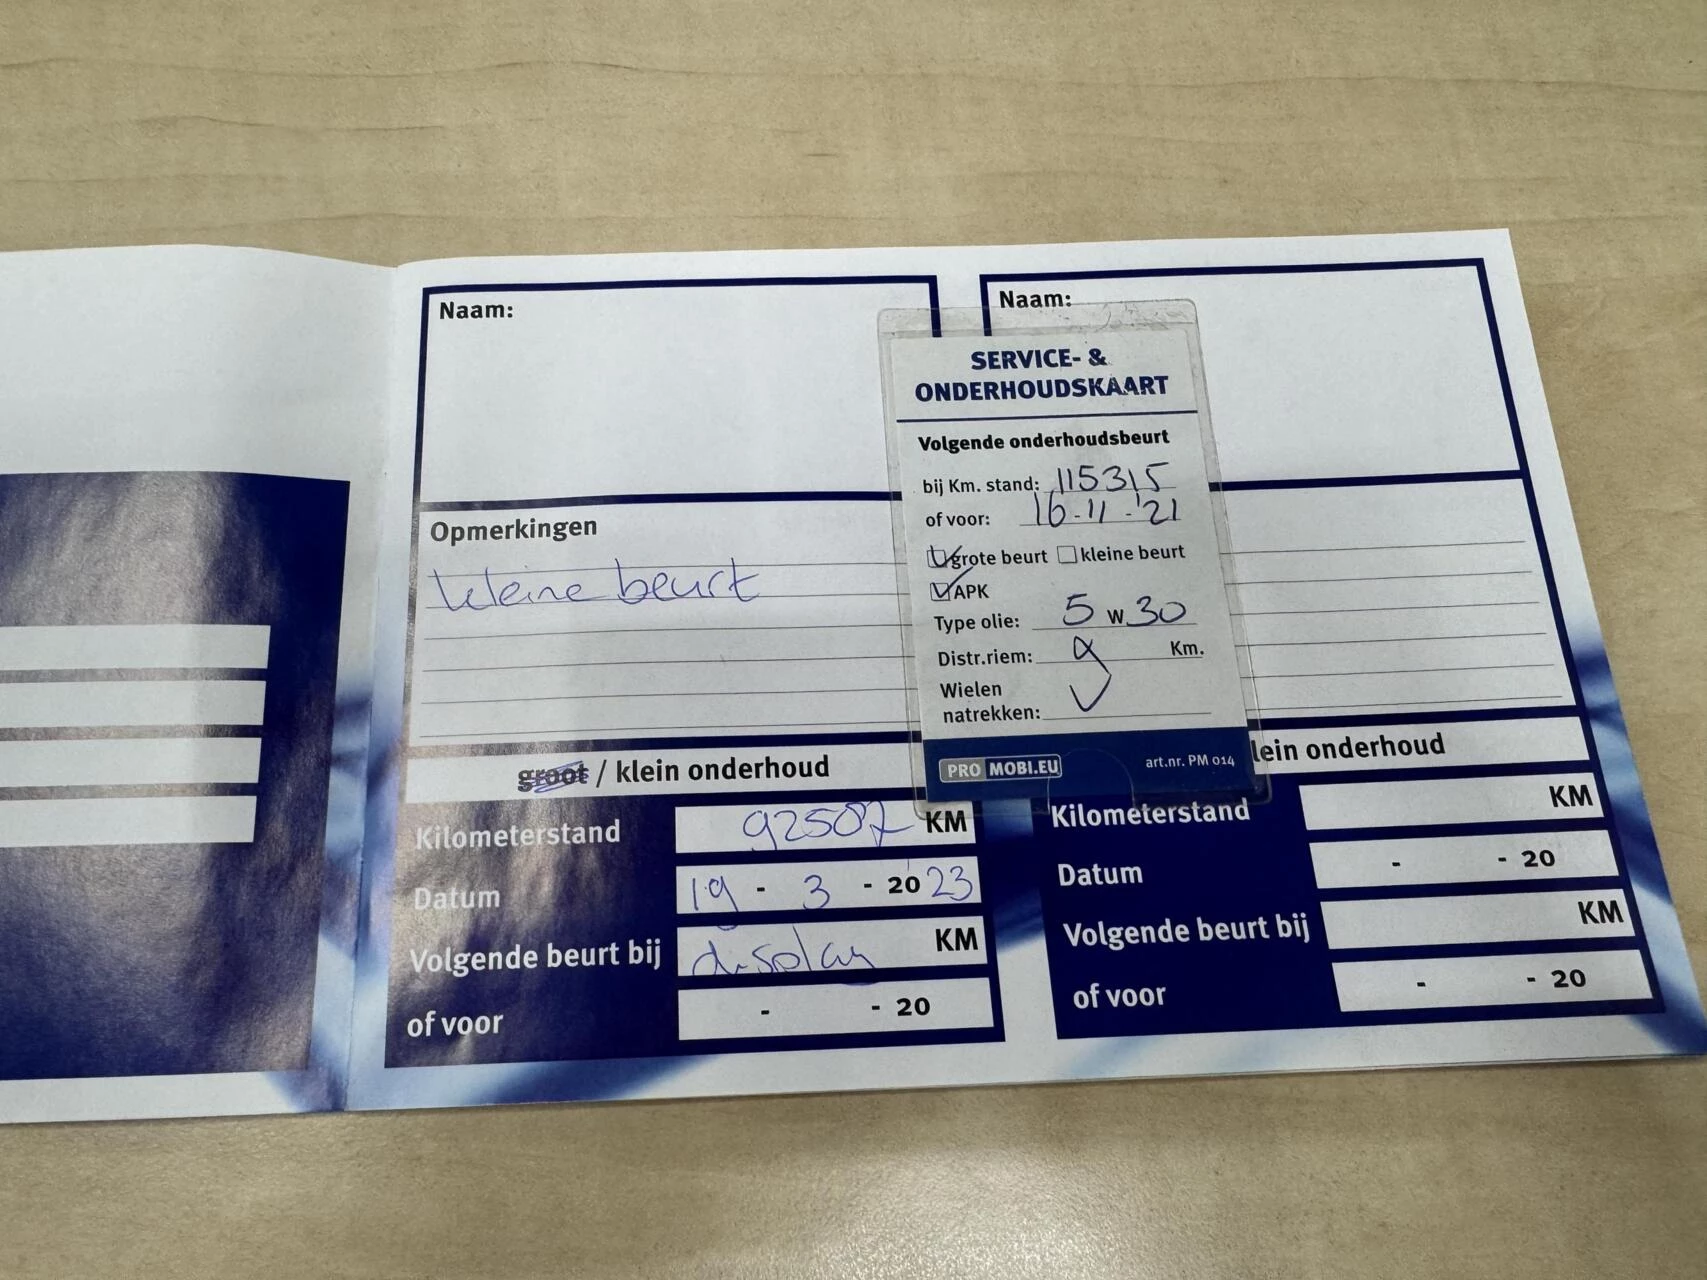 Naam:
Opmerkingen
kleine beurt
groot / klein onderhoud
Kilometerstand 92507 KM
Datum 19 - 3 - 2023
Volgende beurt bij display KM
of voor - - 20
SERVICE- &
ONDERHOUDSKAART
Volgende onderhoudsbeurt
bij Km. stand: 115315
of voor: 16-11-'21
grote beurt kleine beurt
APK
Type olie: 5 W 30
Distr.riem: Km.
Wielen
natrekken:
PROMOBI.EU art.nr. PM 014
Naam:
lein onderhoud
Kilometerstand KM
Datum - - 20
Volgende beurt bij KM
of voor - - 20